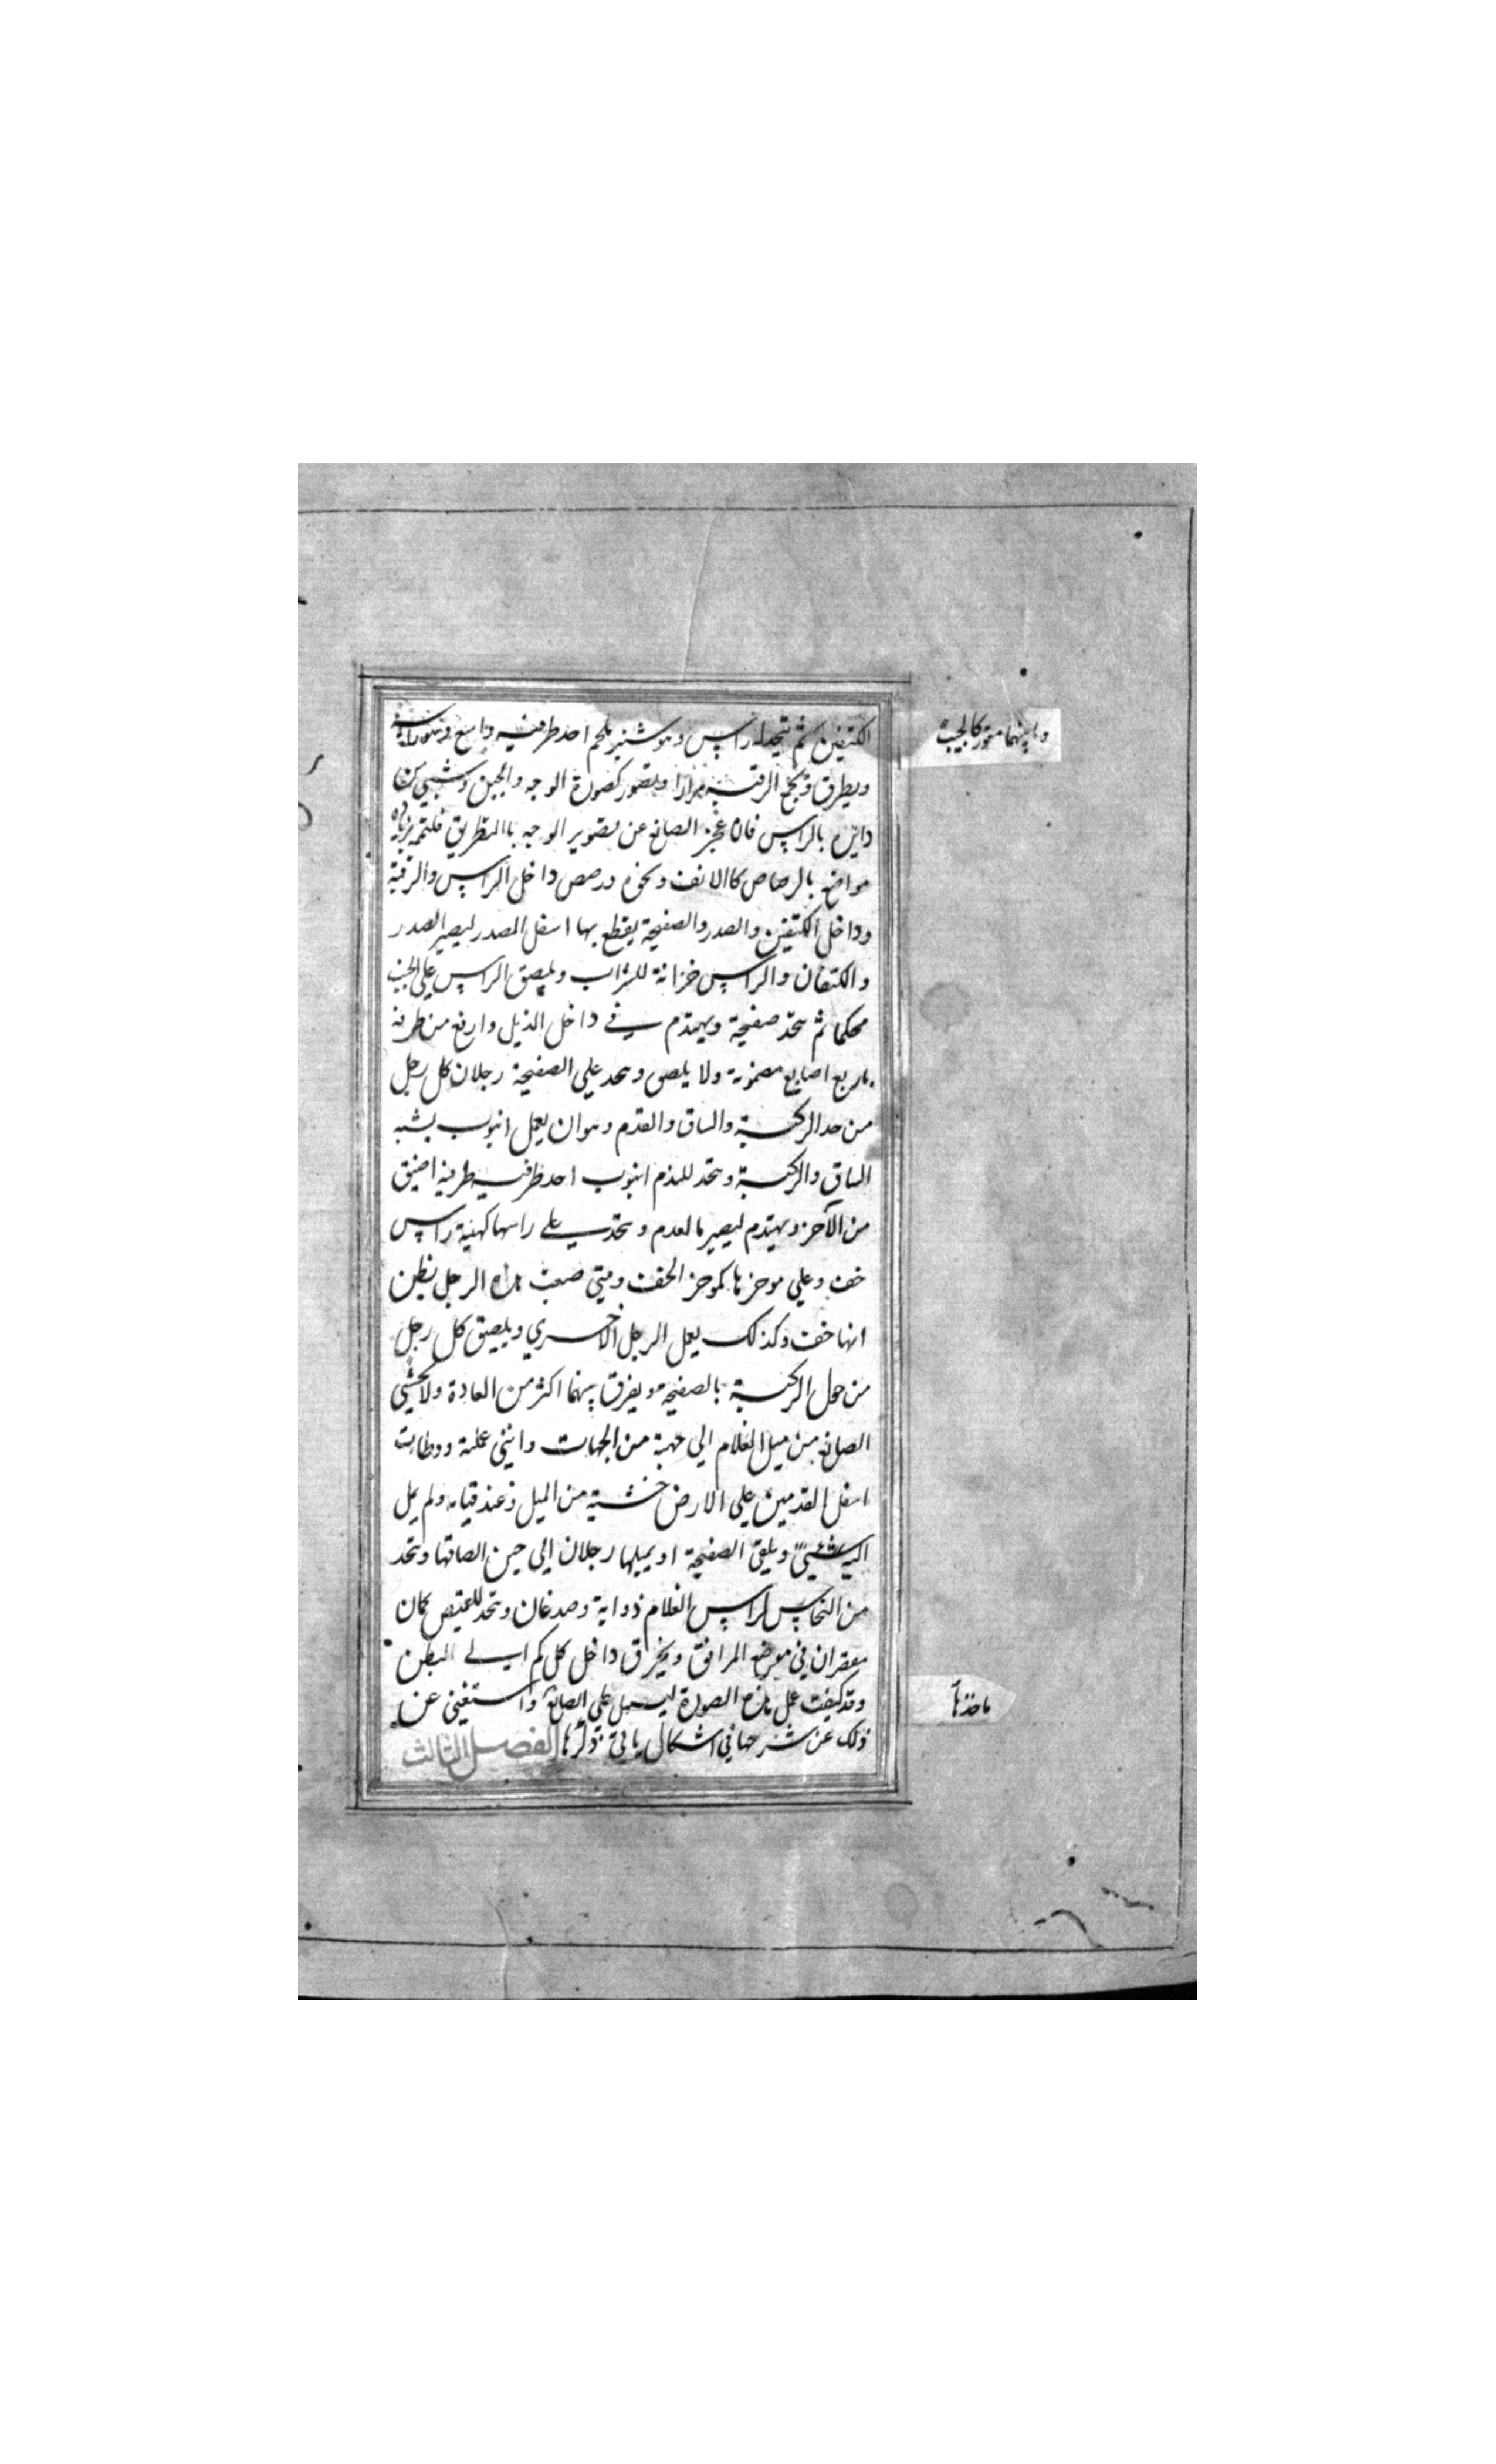 الكتفين ثم يتخذ له راس وهو شنبر يلحم احد طرفيه واسع
ويطرق ويجمع الرقبة مرارا ويصور كصورة الوجه والجبن
دايره بالراس فان عجز الصانع عن تصوير الوجه باالتطريق فليتمه
مواضع بالرصاص كاالانف ونحوه ورصص داخل الراس والرقبة
وداخل الكتفين والصدر والصفيحة يقطع بها اسفل الصدر ليصير الصدر
والكتفان والراس خزانة للشراب ويلصق الراس علي الجيب
محكما ثم يتخذ صفيحة ويهندم في داخل الذيل وارفع من طرفه
باربع اصابع مضمومة ولا يلصق ويتخذ علي الصفيحة رجلان كل رجل
من حد الركبة والساق والقدم وهو ان يعمل انبوب يشبه
الساق والركبة ويتخذ للقدم انبوب احد طرفيه طرفيه اضيق
من الآخر ويهندم ليصير كالقدم ويتخذ علي راسها كهيئة راس
خف وعلي موخرها كموخر الخف ومتي صنعت هذه الرجل يظن
انها خف وكذلك يعمل الرجل الاخري ويلصق كل رجل
من محل الركبة بالصفيحة ويفرق بينهما اكثر من العادة ولا يخشي
الصانع من ميل الغلام الي جهة من الجهات وانني عملته ووطات
اسفل القدمين علي الارض خشية من الميل وعند قيامه ولم يمل
اليه شيئ ويلقي الصفيحة او يميلها رجلان الي حين الصاقها ويتخذ
من النحاس لراس الغلام ذوابة وصدغان ويتخذ للقميص كمان
مقعران في موضع المرافق ويخرق داخل كل كم الي البطن
وقد كيفت عمل هذه الصورة ليسهل علي الصانع واستغني عن
ذلك عن شرحها في اشكال ياتي ذكرها الفصل الثالث
وما بينهما مقور كالجيب
ماخذها